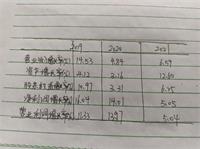 2019 2020 2021
营业收入增长率(%) 14.53 4.84 6.59
资产增长率(%) 4.12 3.16 12.60
股东权益增长率(%) 14.97 3.31 6.35
净利润增长率(%) 16.04 14.01 5.05
营业利润增长率(%) 11.33 5.04